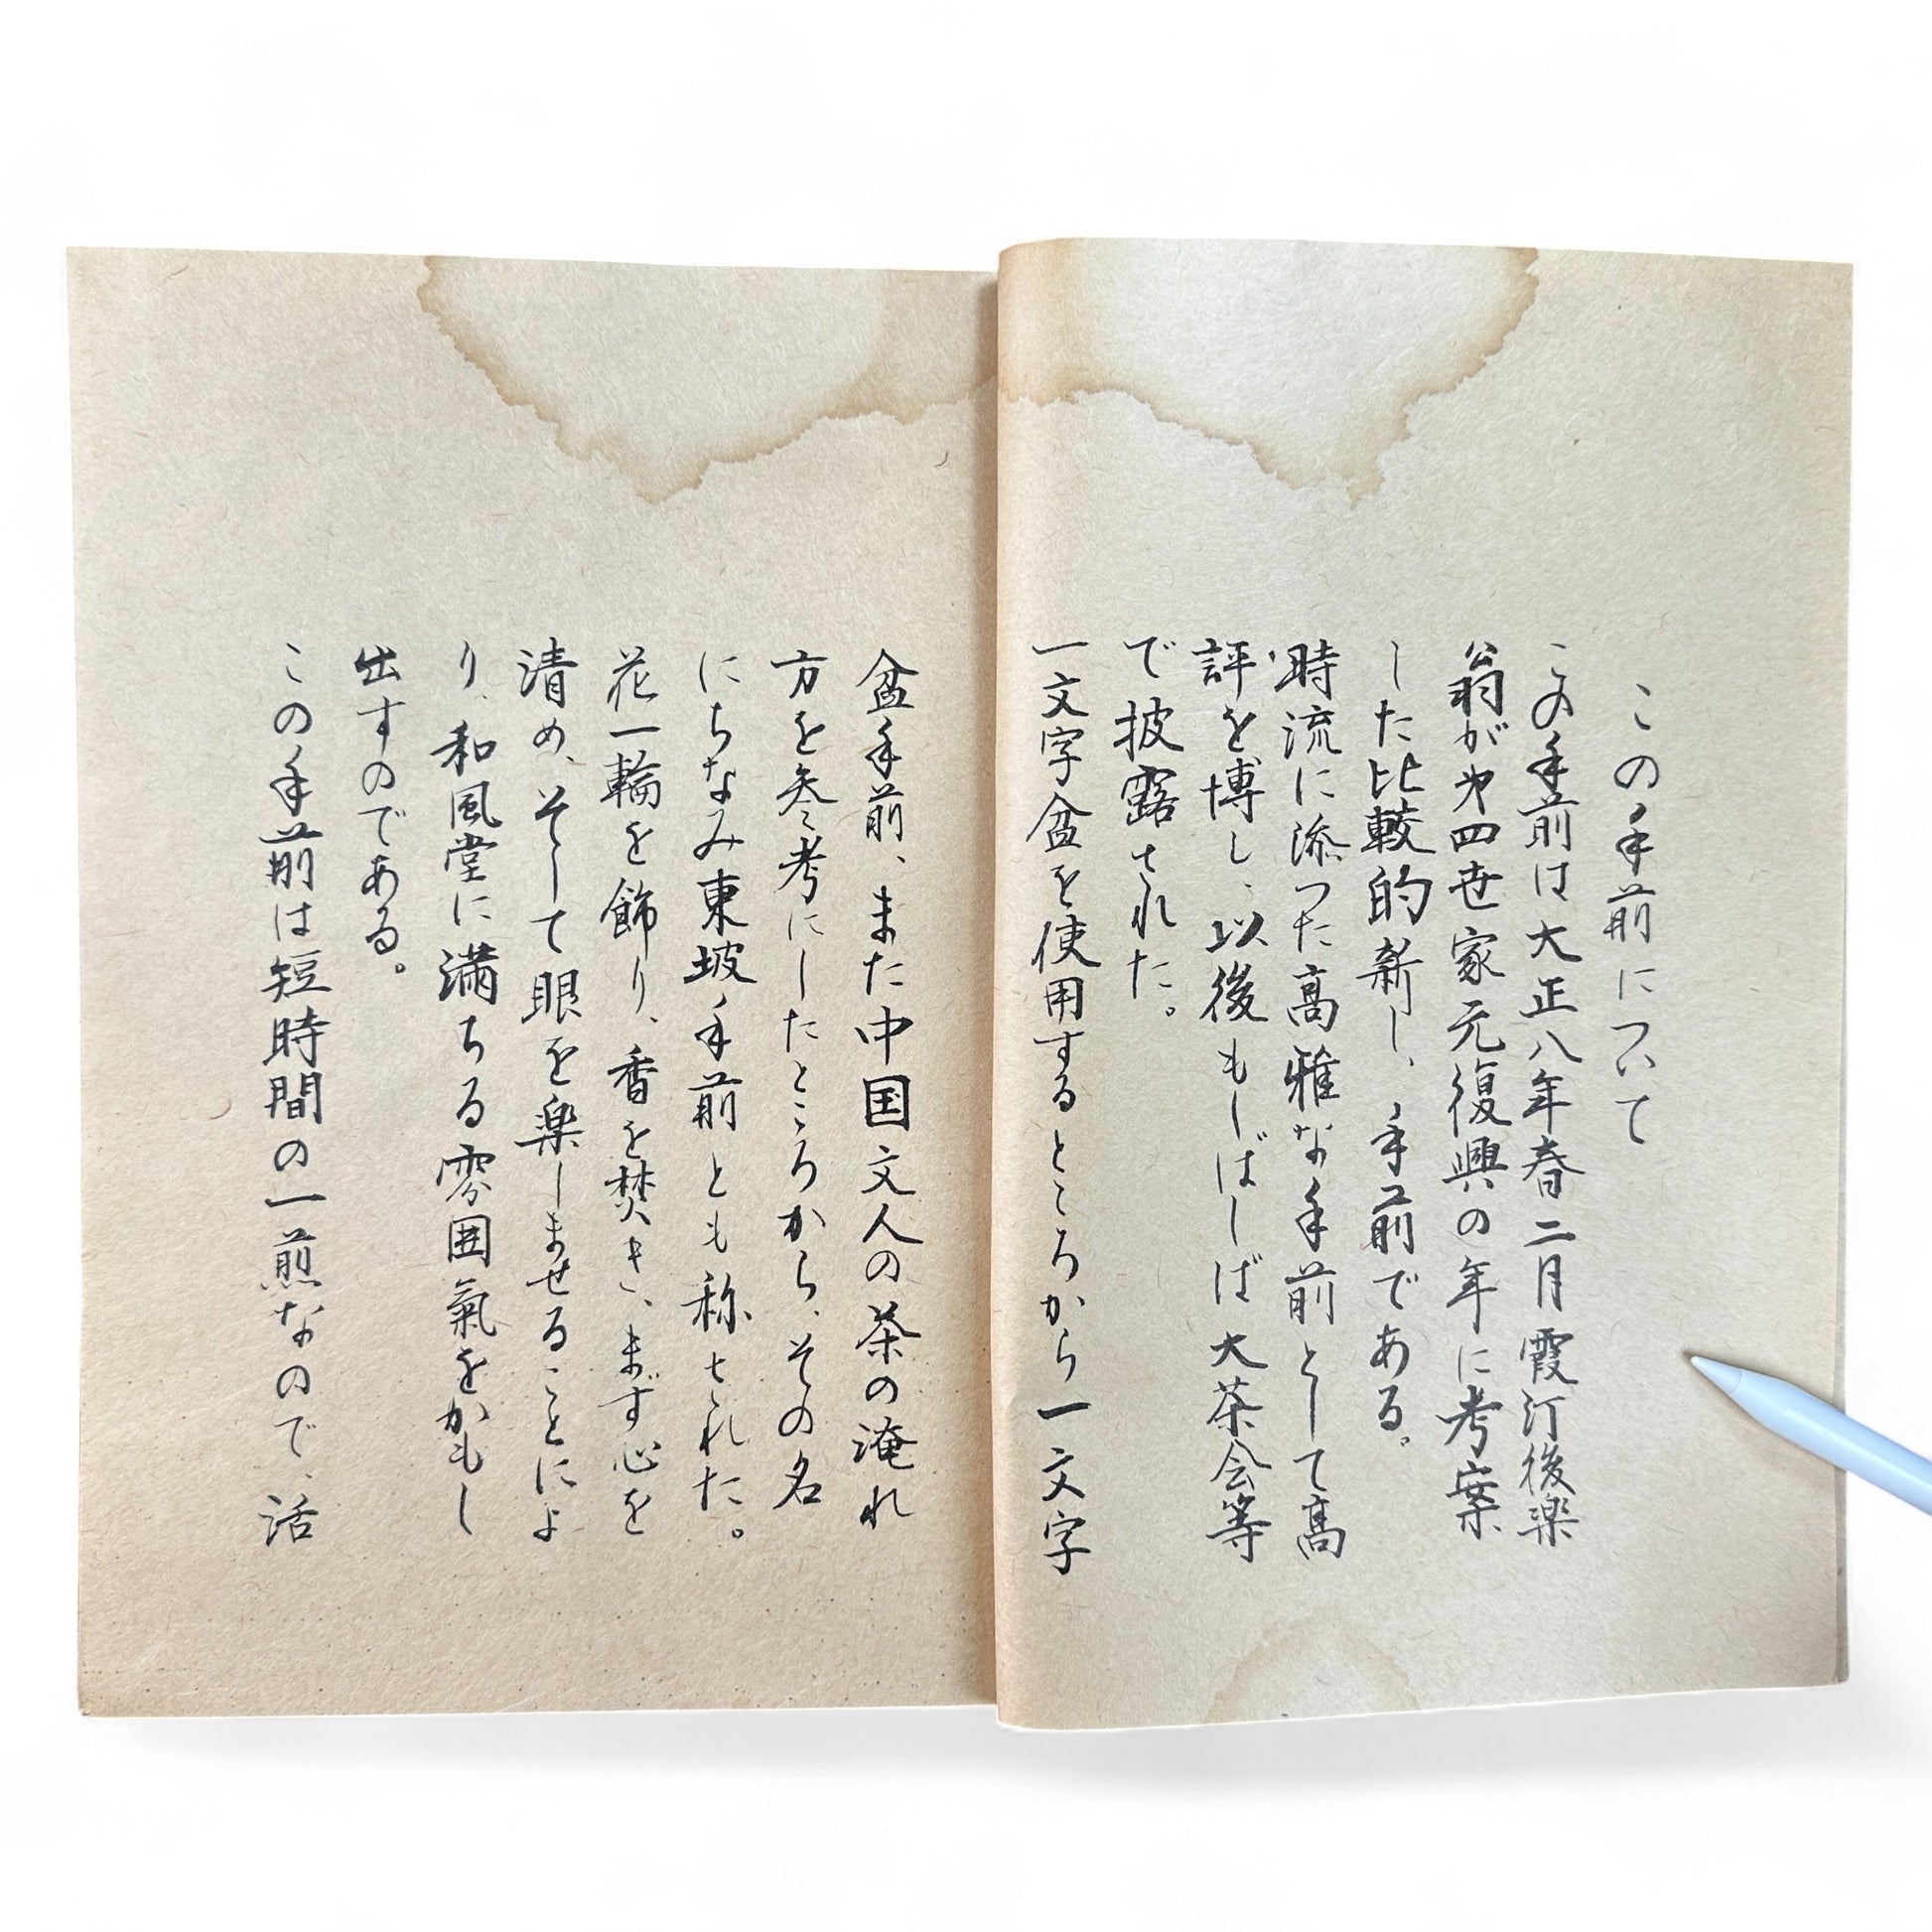 この手前について
この手前は大正八年春二月霞汀後楽
翁が才四世家元復興の年に考案
した比較的新し、手前である。
時流に添った高雅な手前として高
評を博し、以後もしばしば大茶会等
で披露された。
一文字盆を使用するところから一文字
盆手前、また中国文人の茶の淹れ
方を参考にしたところから、その名
にちなみ東坡手前とも称された。
花一輪を飾り、香を焚き、まず心を
清め、そして眼を楽しませることによ
り、和風堂に満ちる雰囲氣をかもし
出すのである。
この手前は短時間の一煎なので、活